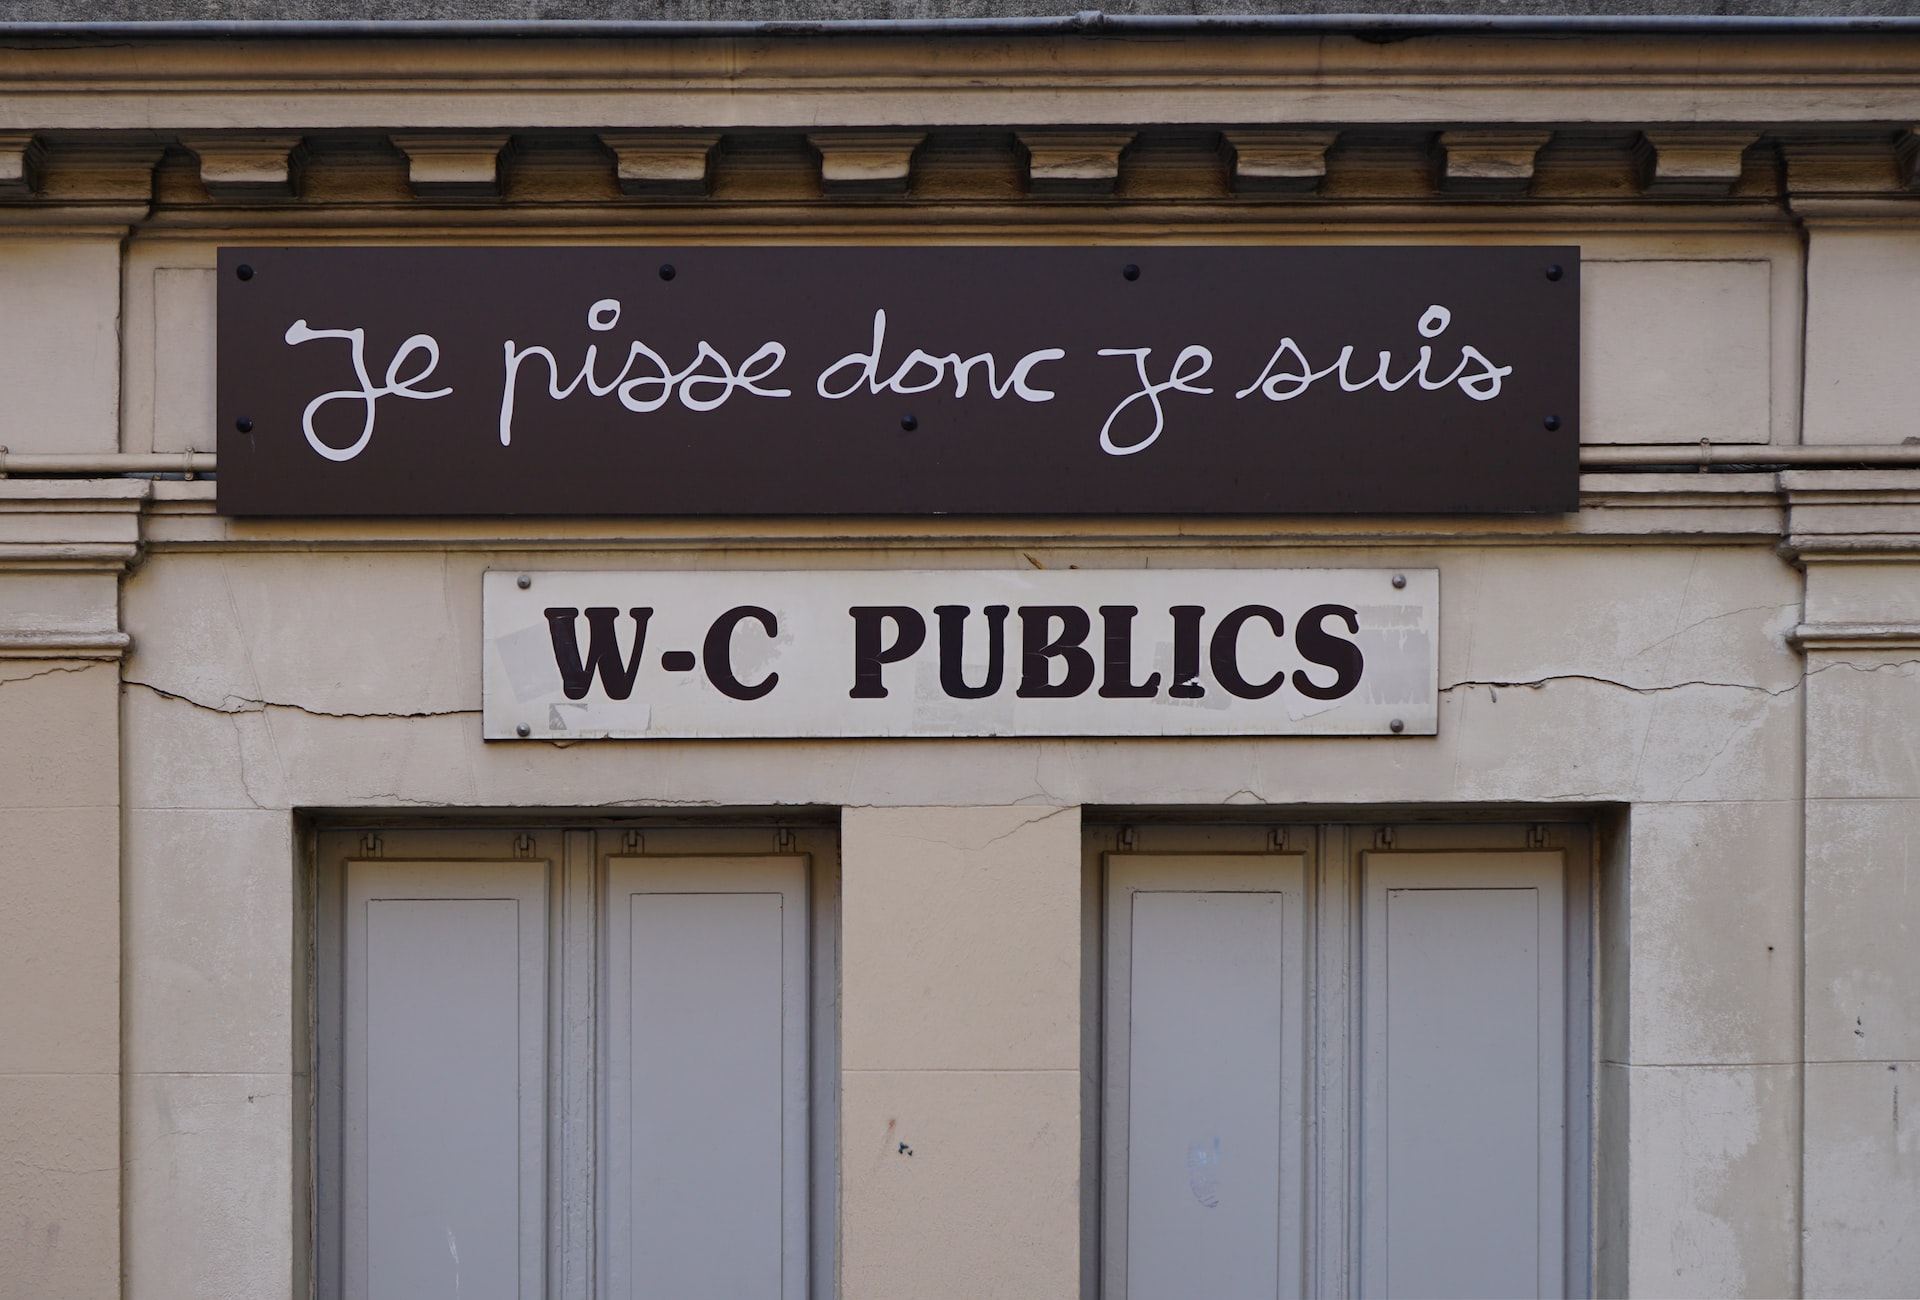 Je pisse donc je suis
W-C PUBLICS